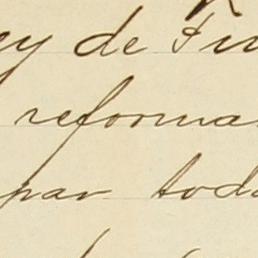 ey de Fu
reforma
par toda